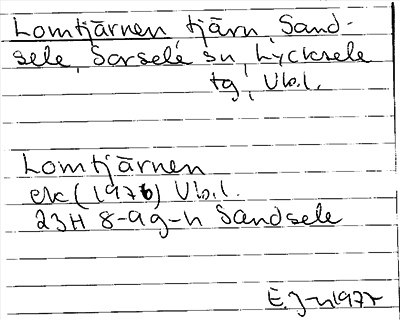 Lomtjärnen tjärn, Sand-
sele, Sorsele sn, Lycksele
tg, Vb.l.
Lomtjärnen
ek (1976) Vb.l.
23H 8-9g-h Sandsele
E.J-n 1977